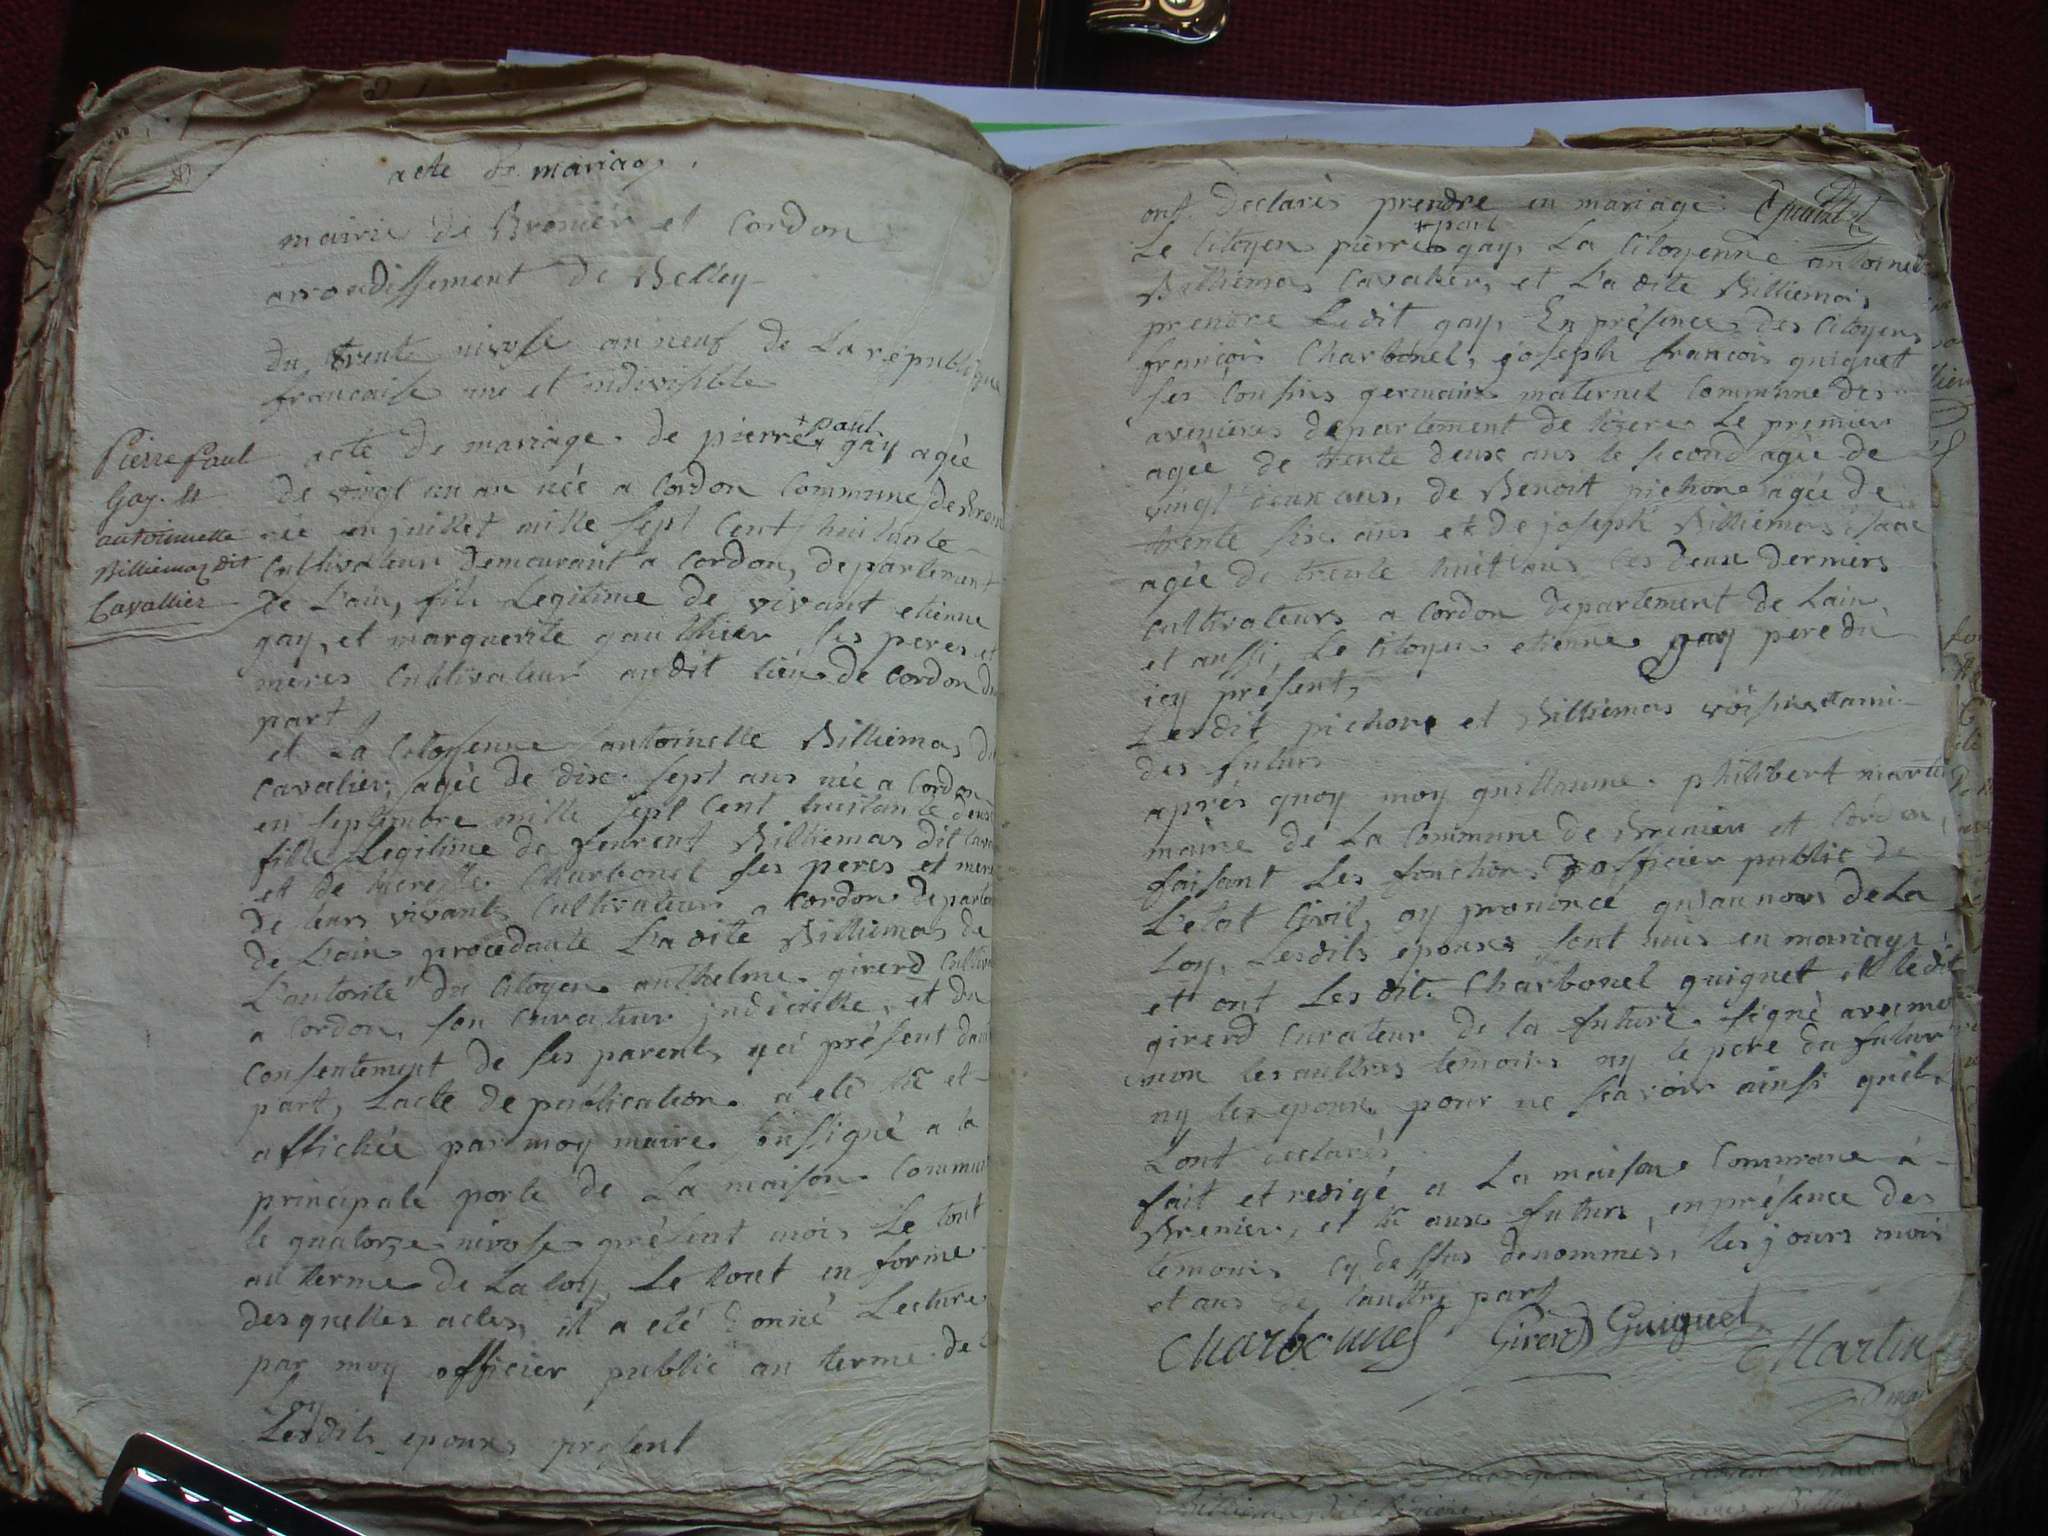 acte de mariage.
mairie de Brenier et Cordon
arrondissement de Belley
du trente nivose an neuf de La république
francaise une et indivisible
Pierre Paul
Gay. et
antoinette
Billiemaz dit
Cavallier
acte de mariage. de pierre + paul gay agée
de vingt un an née a Cordon Commune de Bren
née en juillet mille sept Cent huitante
Cultivateur demeurant a Cordon, departement
de L'ain, fils Legitime de vivant etienne
gay, et marguerite gauthier ses peres et
meres Cultivateur audit Lieu de Cordon d
part
et La Citoyenne antoinette Billiemas d
Cavalier, agée de dix sept ans née a Cordon
en septembre mille sept Cent huitante deux
fille Legitime de Billiemas dit Cava
et de Charbonel ses peres et mere
de leurs vivants Cultivateur a Cordon departe
de L'ain procedante La dite Billiemas de
L'autorité du Citoyen anthelme girerd Cultiv
a Cordon, son Curateur et du
Consentement de ses parents present d
part, Lacte de publication a eté et
affichée par moy maire a la
principale porte de La maison Commun
le quatorze nivose présent mois Le tout
au terme de La loy Le tout en forme
desquelles actes, il a eté donné Lecture
par moy officier public au terme de
Loy
Lesdits epoux present
ont declarés prendre en mariage
Le Citoyen pierre + paul gay, La Citoyenne antoinett
Billiemas Cavalier, et La dite Billiemas
prendre Ledit gay, En présence des Citoyens
francois Charbonel, joseph francois guiguet
ses Cousins germains maternel Commune des
avenieres departement de lizere Le premier
agée de trente deux ans le second agée de
vingt deux ans, de Benoit pichon agée de
trente six ans et de joseph Billiemas
agée de trente huit ans les deux derniers
Cultivateurs a Cordon departement de Lain,
et aussi, Le Citoyen etienne gay pere du
icy présent,
Lesdit pichon et Billiemas voisins
des futurs
aprés quoy moy guillaume philibert martin
maire de La Commune de Brenier et Cordon,
faisant Les fonction d'officier public de
L'etat Civil, ay prononcé qu'au nom de La
Loy, Lesdits epoux sont unis en mariage,
et ont Les dit. Charbonel guiguet et ledit
girerd Curateur de la future signé avec mo
non les aultres temoins ny le pere du futur
ny les epoux pour ne scavoir ainsi quils
Lont declarés
fait et redigé a La maison Commune á
Brenier, et aux futurs, en présence des
temoins cy dessus denommés, les jours mois
et ans de laultre part
Charbonnel Girerd Guiguet
Martin